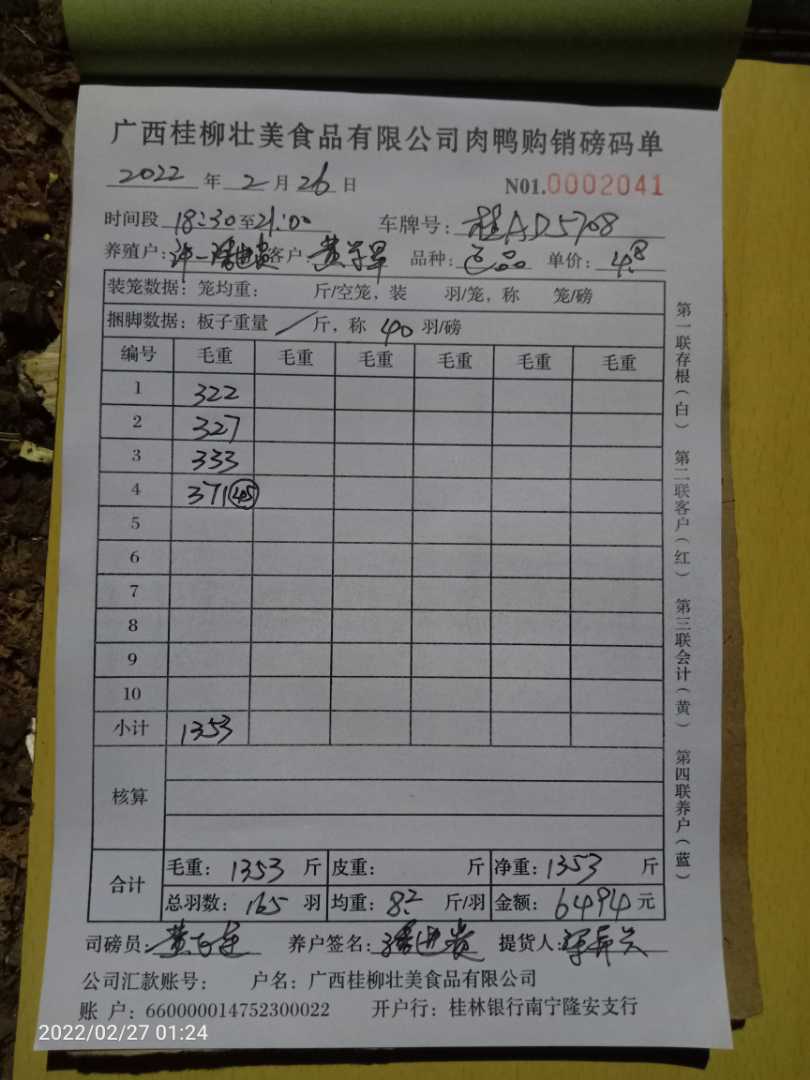 广西桂柳壮美食品有限公司肉鸭购销磅码单
2022 年 2 月 26 日 N01.0002041
时间段 18:30 至 21:00 车牌号: 桂AD5708
养殖户: 客户: 黄 品种: 单价: 4.8
装笼数据: 笼均重: 斤/空笼, 装 羽/笼, 称 笼/磅
捆脚数据: 板子重量 / 斤, 称 40 羽/磅
编号 毛重 毛重 毛重 毛重 毛重 毛重
1 322
2 327
3 333
4 371 45
5
6
7
8
9
10
小计 1353
核算
合计 毛重: 1353 斤 皮重: 斤 净重: 1353 斤
总羽数: 165 羽 均重: 8.2 斤/羽 金额: 6494 元
司磅员: 黄 养户签名: 提货人:
公司汇款账号: 户名: 广西桂柳壮美食品有限公司
账 户: 660000014752300022 开户行: 桂林银行南宁隆安支行
第一联存根(白) 第二联客户(红) 第三联会计(黄) 第四联养户(蓝)
2022/02/27 01:24